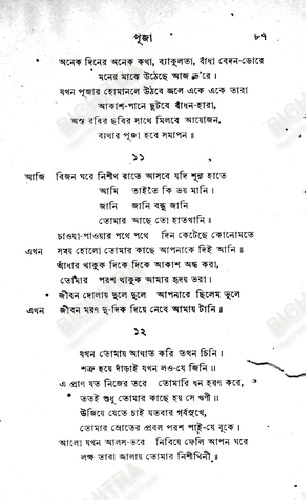 পূজা ৮৭
অনেক দিনের অনেক কথা, ব্যাকুলতা, বাঁধা বেদন-ডোরে
মনের মাঝে উঠেছে আজ ভ'রে।
যখন পূজার হোমানলে উঠবে জ্বলে একে একে তারা
আকাশ-পানে ছুটবে বাঁধন-হারা,
অস্ত রবির ছবির সাথে মিলবে আয়োজন,
ব্যথার পূজা হবে সমাপন॥
১১
আজি বিজন ঘরে নিশীথ রাতে আসবে যদি শূন্য হাতে
আমি তাইতে কি ভয় মানি।
জানি জানি বন্ধু জানি
তোমার আছে তো হাতখানি॥
চাওয়া-পাওয়ার পথে পথে দিন কেটেছে কোনোমতে
এখন সময় হোলো তোমার কাছে আপনাকে দিই আনি॥
আঁধার থাকুক দিকে দিকে আকাশ অন্ধ করা,
তোমার পরশ থাকুক আমার হৃদয় ভরা।
জীবন দোলায় দুলে দুলে আপনারে ছিলেম ভুলে
এখন জীবন মরণ দু-দিক দিয়ে নেবে আমায় টানি॥
১২
যখন তোমায় আঘাত করি তখন চিনি।
শত্রু হয়ে দাঁড়াই যখন লও-যে জিনি॥
এ প্রাণ যত নিজের তরে তোমারি ধন হরণ করে,
ততই শুধু তোমার কাছে হয় সে ঋণী॥
উজিয়ে যেতে চাই যতবার গর্বসুখে,
তোমার স্রোতের প্রবল পরশ পাই-যে বুকে।
আলো যখন আলস-ভরে নিবিয়ে ফেলি আপন ঘরে
লক্ষ তারা জ্বালায় তোমার নিশীথিনী॥